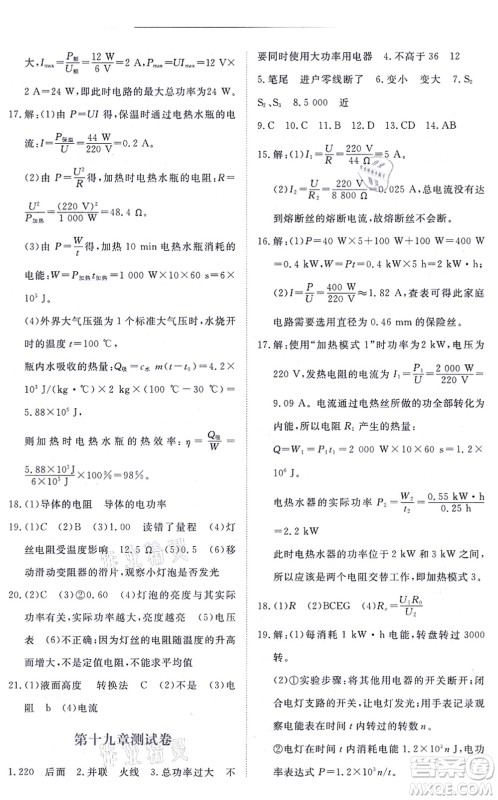 大，I_max=P/U_额=12 W/6 V=2 A，可知最大功率为 P=UI_max=12 V×
2 A=24 W，即此时电路的最大总功率为 24 W。
17.解：(1)由 P=UI 得，保温时通过电热水瓶的电
流：I=P_保温/U=44 W/220 V=0.2 A。
(2)由 P=U²/R得，加热时电热水瓶的电阻：R=
U²/P_加热=(220 V)²/1 000 W=48.4 Ω。
(3)由 P=W/t得，加热 10 min 电热水瓶消耗的
电能：W=P_加热t_加热=1 000 W×10×60 s=6×
10⁵ J。
(4)外界大气压强为 1 个标准大气压时，水烧开
时的温度 t=100 ℃，
瓶内水吸收的热量：Q_吸=c_水m(t-t₀)=4.2×
10³ J/(kg·℃)×2 kg×(100 ℃-30 ℃)=
5.88×10⁵ J，
则加热时电热水瓶的热效率：η=Q_吸/W=
5.88×10⁵ J/6×10⁵ J×100%=98%。
18.(1)导体的电阻 导体的电功率
19.(1)C (2)B (3)1.00 读错了量程 (4)灯
丝电阻受温度影响 12.5 Ω (5)0.5 (6)移
动滑动变阻器的滑片，观察小灯泡是否发光
20.(1)C (3)②0.60 (4)灯泡的亮度与实际功
率有关，实际功率越大，亮度越亮 (5)实际功率
过大 (6)不正确；因为灯丝的电阻随温度的升高
而增大，不是定值电阻，不能求平均值
21.(1)液面高度 转换法 (2)C 电流、通电时间、
电阻 b (4)电流
第十九章测试卷
1.220 后面 2.并联 火线 3.总功率过大 不
要同时使用大功率用电器 4.不高于 36 12
5.笔尾 进户零线断了 6.变小 变大 7.S₂
S₂、S₃ 8.5 000 近
9.C 10.B 11.D 12.C 13.CD 14.AB
15.解：(1)I₁=U/R=220 V/44 Ω=5 A。
(2)I₂=U/R=220 V/8 800 Ω=0.025 A，总电流没有达
到熔断丝的熔断电流，故熔断丝不会熔断。
16.解：(1)P=40 W×5+100 W+100 W=400 W
=0.4 kW，W=Pt=0.4 kW×1 h=0.4 kW·h。
(2)I=P/U=400 W/220 V≈1.82 A，查表可知此家庭
电路需要选用直径为 0.46 mm 的保险丝。
17.解：使用“加热模式 1”时功率为 2 000 W，电压为
220 V，发热电阻的电流 I₁=P₁/U=2 000 W/220 V≈
9.09 A。工作过程中电流所做的功全部转化为
内能，所以电阻 R₁ 产生的热量：
Q=W=P₁t=2 000 W×10×60 s=1.2×10⁶ J。
电热水器的实际功率 P=W₂/t=0.55 kW·h/0.5 h=
1.1 kW，
此时电热水器的功率位于 2 kW 与 1 kW 之间，
因此是两电阻交替工作，即加热模式 3。
18.(1)R (2)BCEG (3)R_x=U₁R₀/U₂
19.解：(1)每消耗 1 kW·h 的电能，转盘转过 3000
转。
(2)①实验步骤：将其他用电器的开关断开；闭
合电灯支路的开关，让电灯正常工作；用手表记录
观察电能表的转盘在时间 t 内转过的转数 n。
②电灯的实际功率